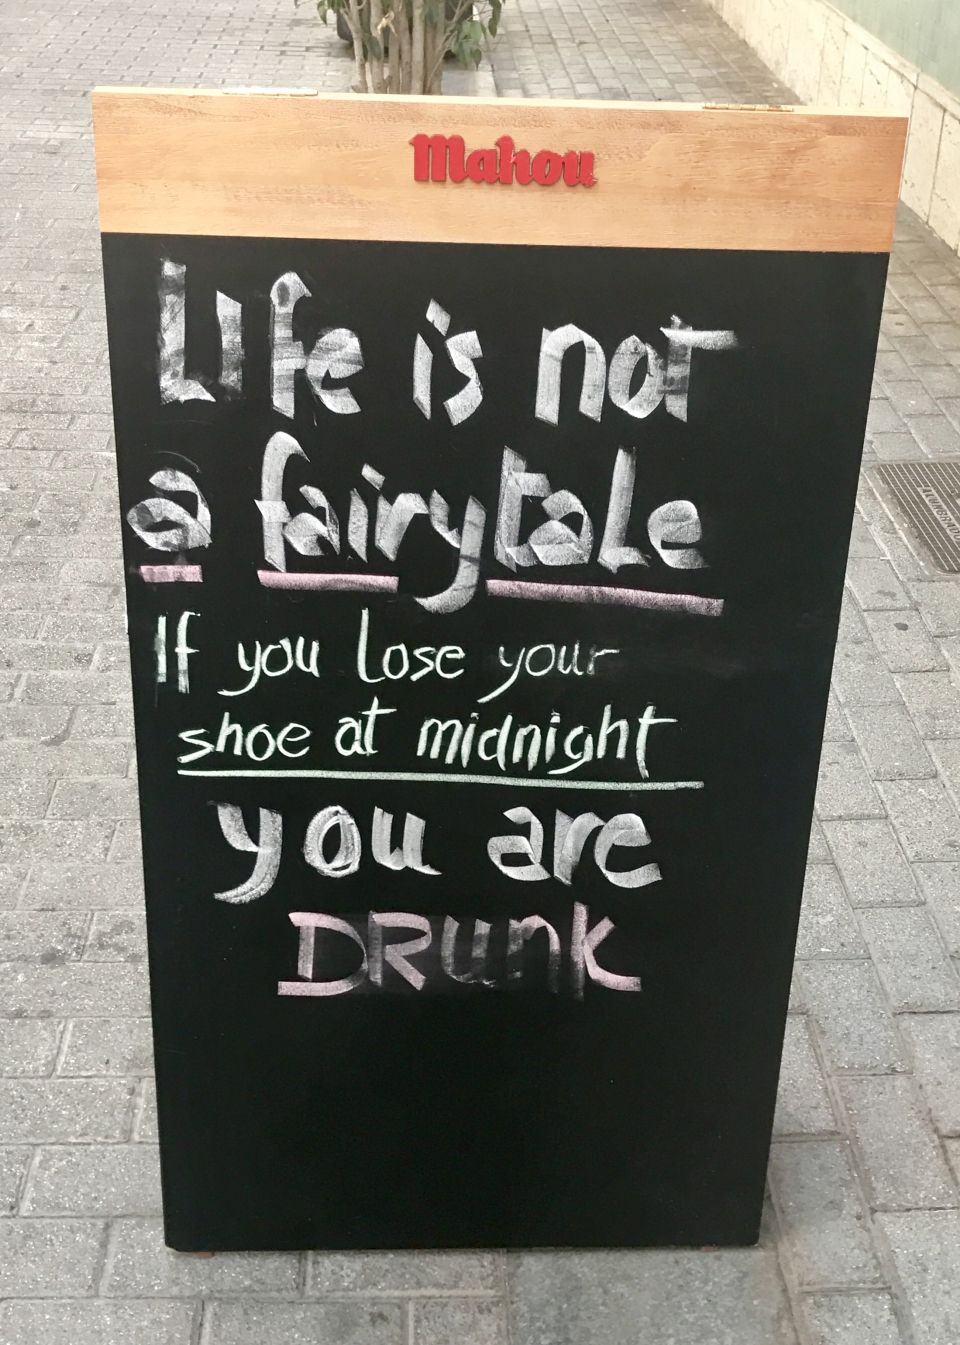 Mahou
Life is not
a fairytale
If you lose your
shoe at midnight
you are
DRunk